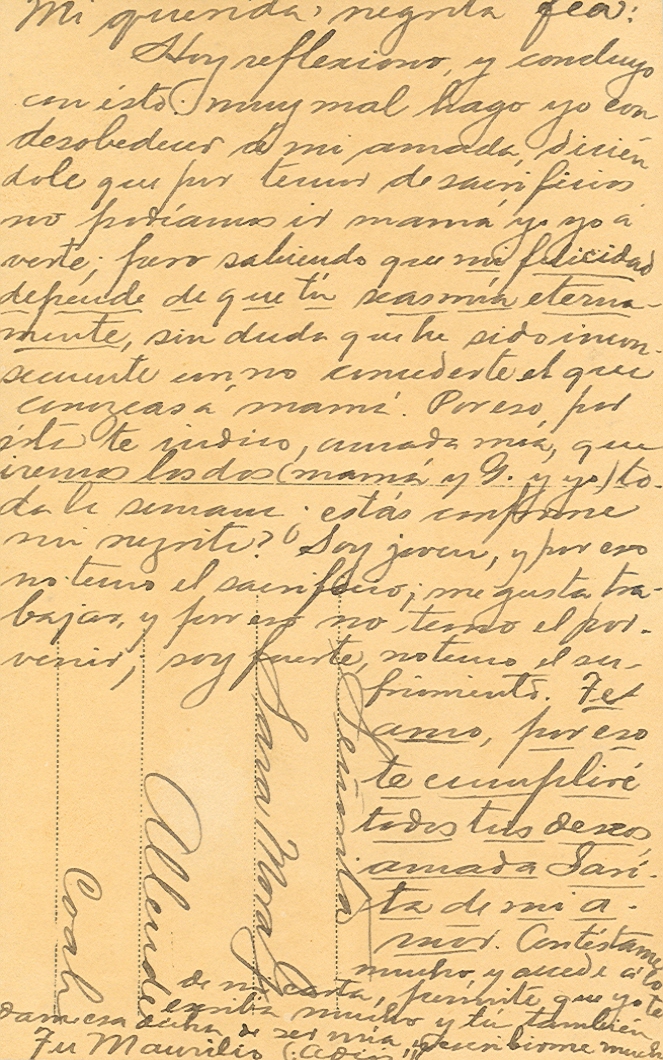 Mi querida, negrita fea:
Hoy reflexiono, y concluyo
con ésto: muy mal hago yo con
desobedecer á mi amada, dicién
dole que por temor de sacrificios
no podíamos ir mamá y yo á
verte; pero sabiendo que mi felicidad
depende de que tú seas mía eterna-
mente, sin duda que he sido incon-
secuente con no concederte el que
conozcas á mamá. Por eso por
ésta te indico, amada mía, que
iremos los dos (mamá y G. y yo) to-
da la semana. estás conforme
mi negrita? Soy joven, y por eso
no temo el sacrificio; me gusta tra-
bajar, y por eso no temo el por-
venir; soy fuerte, no temo el su-
frimiento. Te
amo, por eso
te cumpliré
todos tus deseos,
amada Sari-
ta de mi a-
mor. Contéstame
mucho y accede á lo
de mi carta, permite que yo te
escriba mucho y tú también
dame esa dicha de ser mía, escribiéndome mucho
Tu Maurilio (adiós)
Señorita
Sara
Allende
Coah